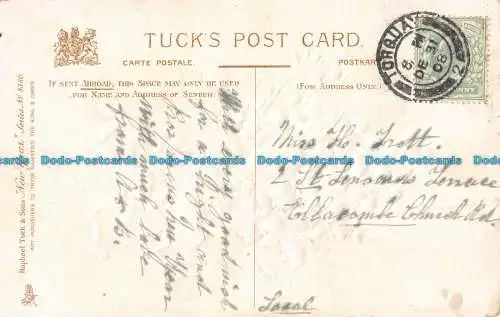 TUCK'S POST CARD.
CARTE POSTALE.
POSTKAR
IF SENT ABROAD, THIS SPACE MAY ONLY BE USED
FOR NAME AND ADDRESS OF SENDER.
(FOR ADDRESS ONLY.)
TORQUAY
8 PM
DE 31
08
2
With every good wish
for a Bright and
Prosperous New Year
with much love
from
Miss K. Trott.
2 St Leonards Terrace
Ellacombe Church Rd.
Local
Raphael Tuck & Sons "New Year" Series
ART PUBLISHERS TO THEIR MAJESTIES THE KING & QUEEN
Dodo-Postcards Dodo-Postcards Dodo-Postcards Dodo-Postcards
Dodo-Postcards Dodo-Postcards Dodo-Postcards Dodo-Postcards